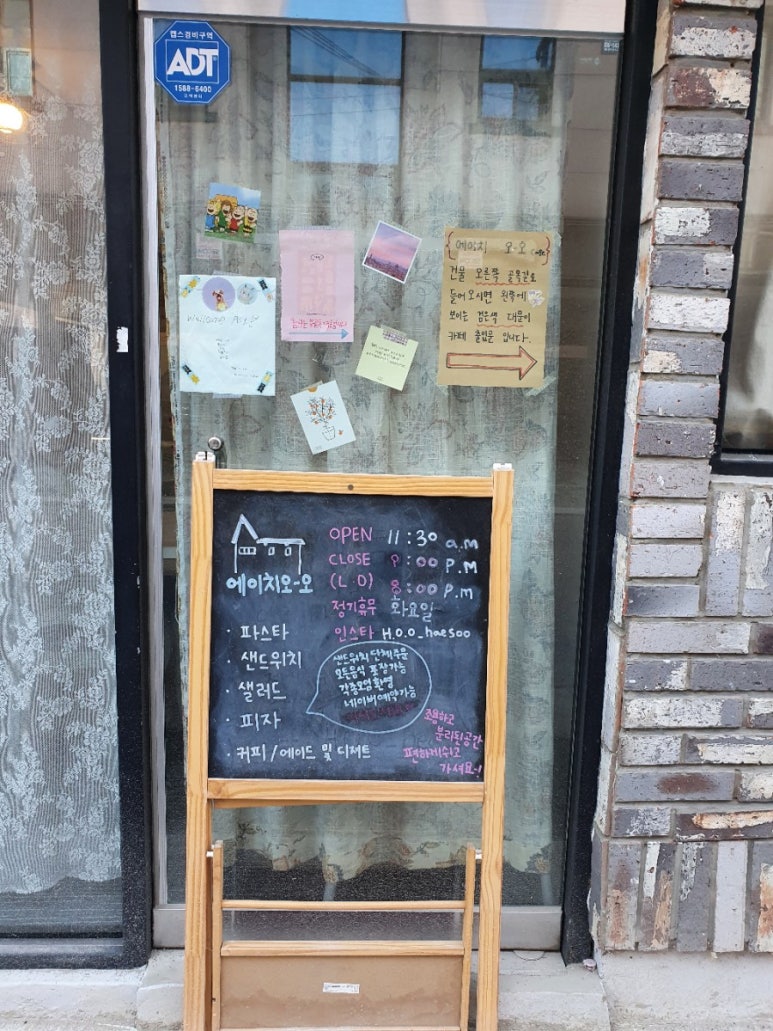 캡스경비구역
ADT
1588-6400
에이치 오-오
건물 오른쪽 골목길로
들어오시면 왼쪽에
보이는 검은색 대문이
카페 출입문 입니다.
OPEN 11:30 a.m
CLOSE 9:00 P.M
(L.O) 8:00 P.M
정기휴무 화요일
인스타 H.O.O_haesoo
에이치오-오
· 파스타
· 샌드위치
· 샐러드
· 피자
· 커피/에이드 및 디저트
샌드위치 단체주문
모든음식 포장가능
각종모임환영
네이버예약가능
조용하고
분리된공간
편하게쉬다
가셔요~!